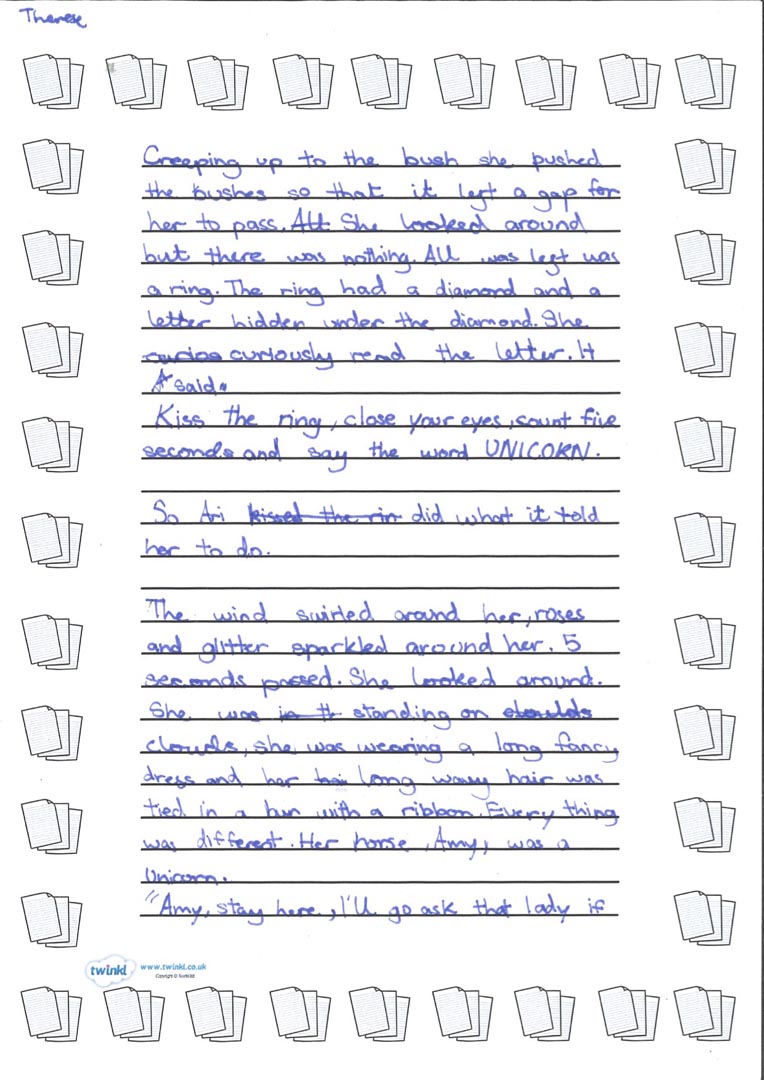 Therese
Creeping up to the bush she pushed
the bushes so that it left a gap for
her to pass. All She looked around
but there was nothing. All was left was
a ring. The ring had a diamond and a
letter hidden under the diamond. She
curios curiously read the letter. It
said"
Kiss the ring, close your eyes, count five
seconds and say the word UNICORN.
So Ari kissed the rin did what it told
her to do.
The wind swirled around her, roses
and glitter sparkled around her. 5
seconds passed. She looked around.
She was in th standing on cloulds
clouds, she was wearing a long fancy
dress and her hai long wavy hair was
tied in a bun with a ribbon. Every thing
was different. Her horse, Amy, was a
Unicorn.
"Amy, stay here, I'll go ask that lady if
twinkl www.twinkl.co.uk